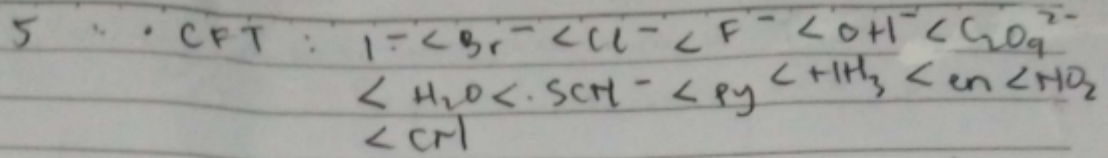 5 . . CFT : I⁻ < Br⁻ < Cl⁻ < F⁻ < OH⁻ < C₂O₄²⁻
< H₂O < . SCN⁻ < py < NH₃ < en < NO₂
< CN